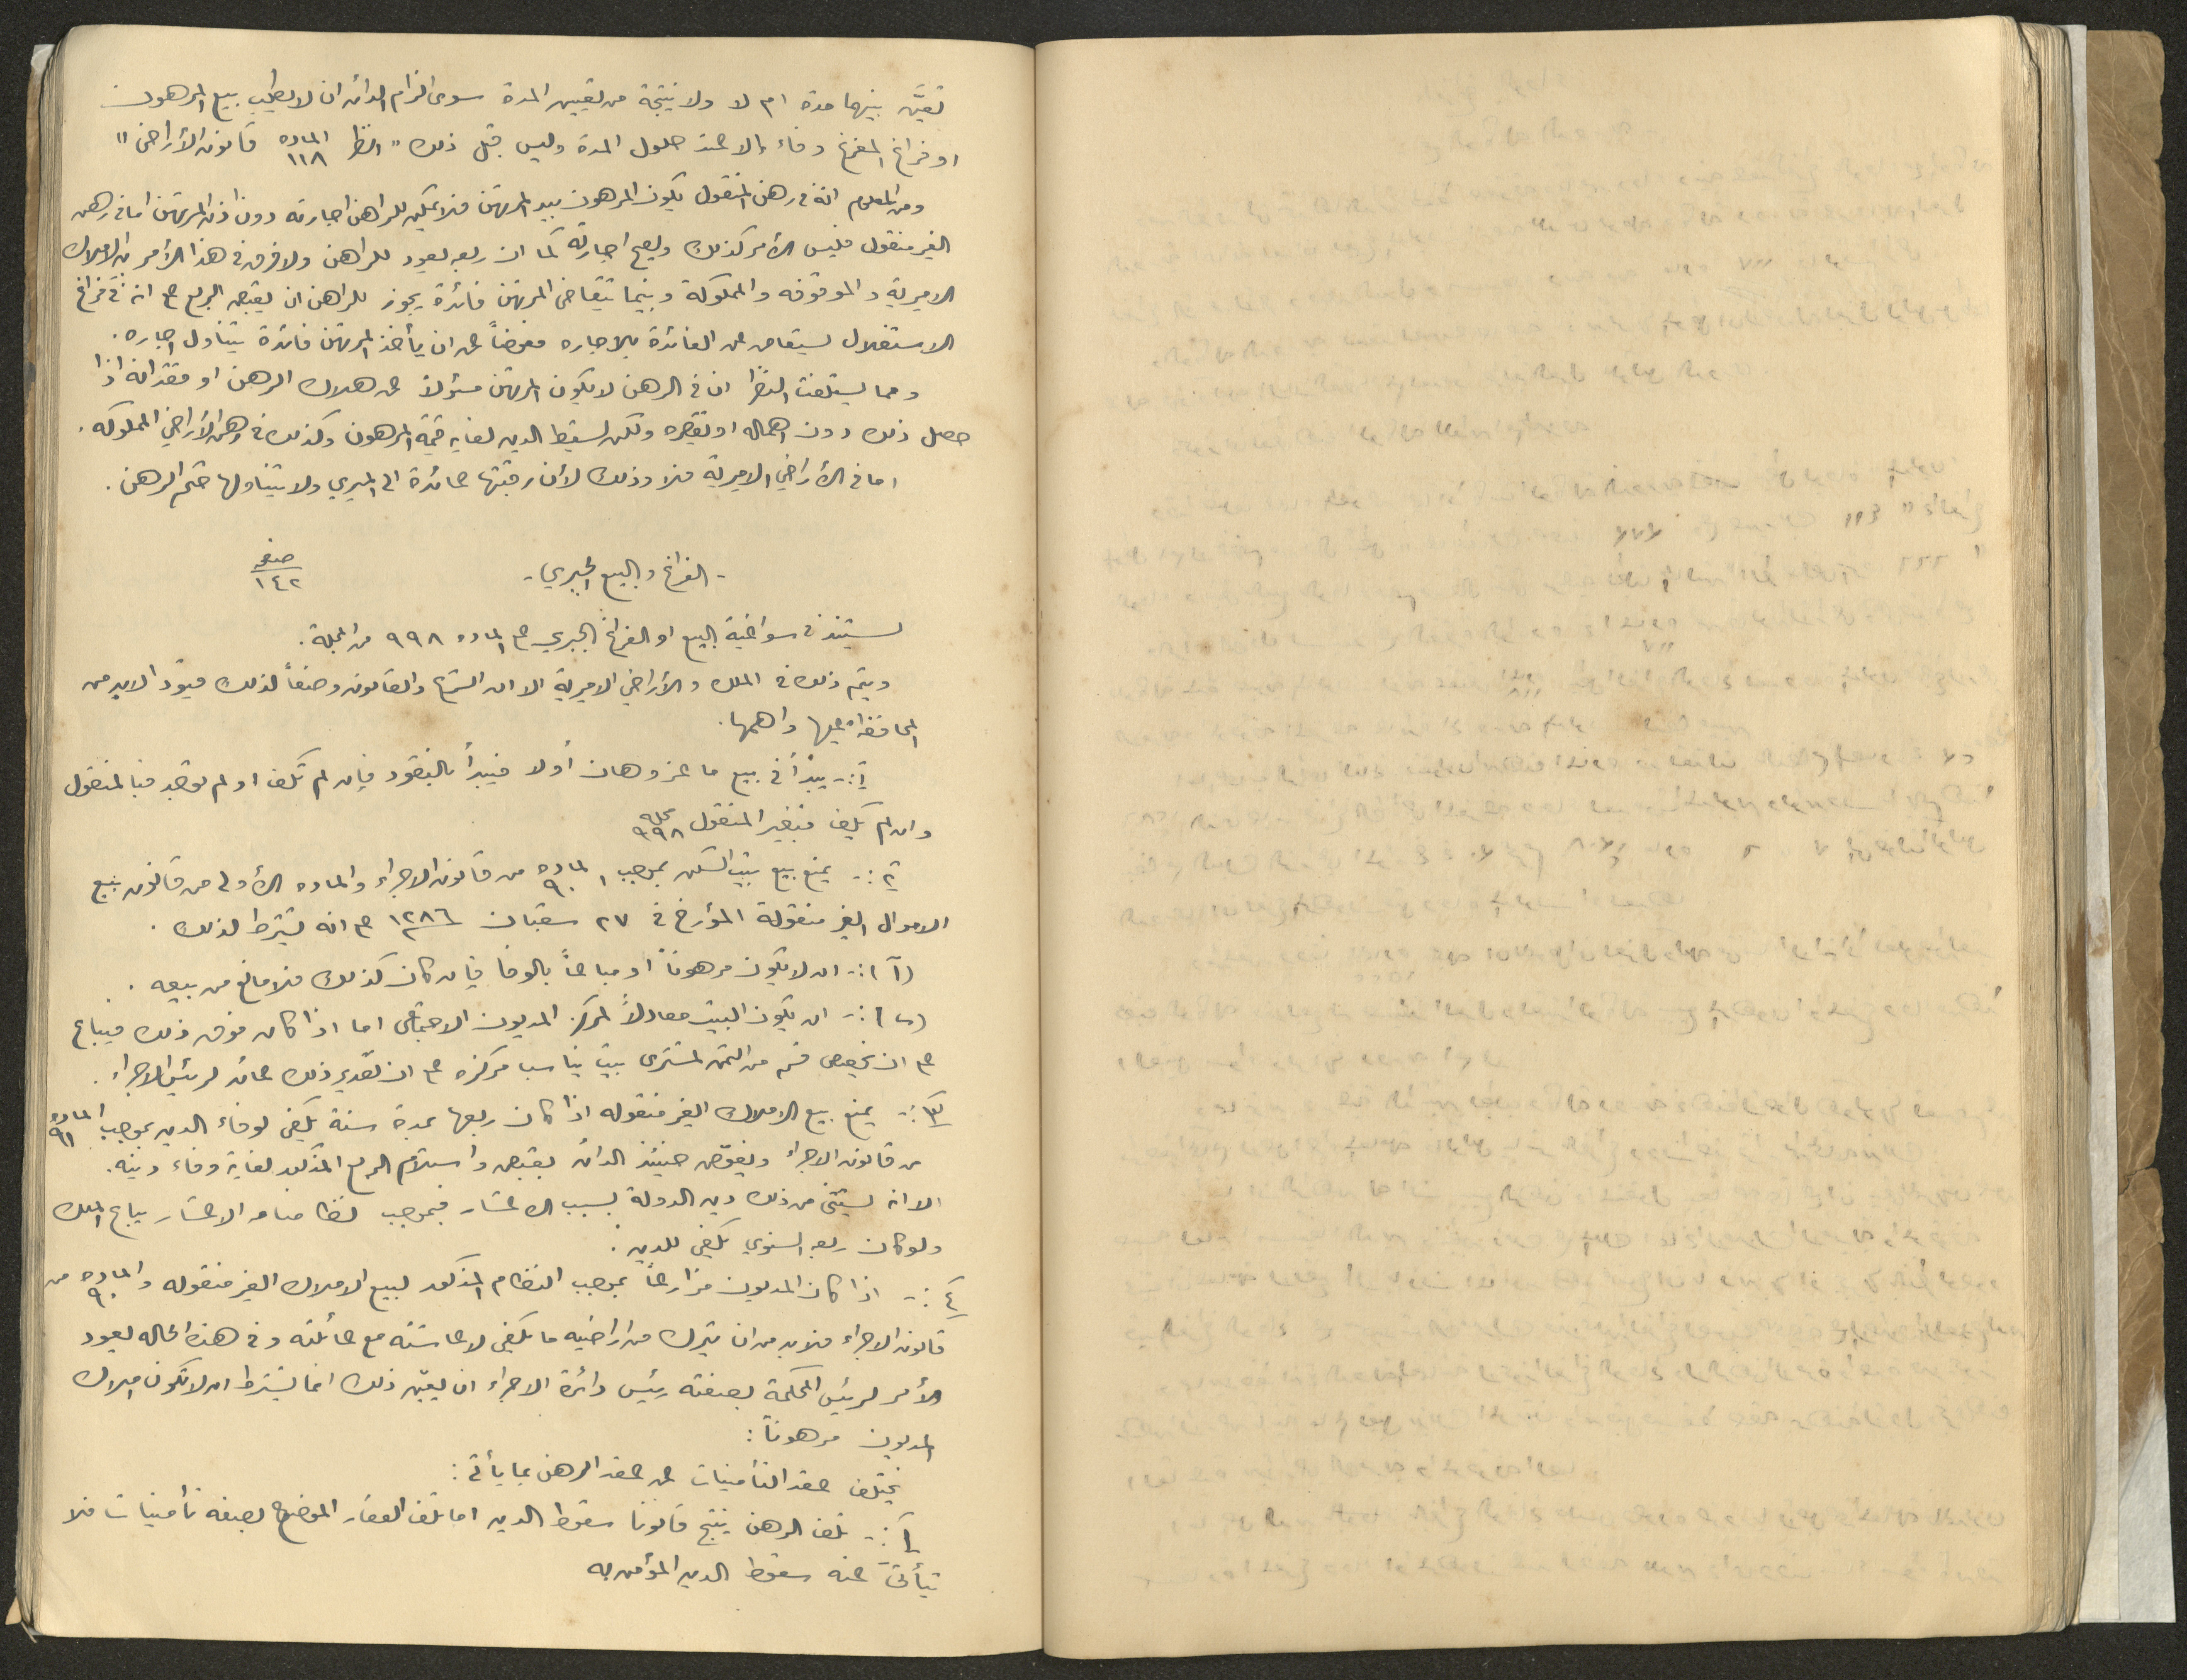 تعيَّن بينهما مدة ام لا ولا نتيجة من تعيين المدة سوى الزام الدائن ان لا يطلب بيع المرهون
او فراغ المفرغ وفاء إلا عند حلول المدة وليس قبل ذلك " انظر المادة ١١٨ قانون الأراضي "
ومن المعلوم انه في رهن المنقول يكون المرهون بيد المرتهن فلا يمكن للراهن اجارته دون اذن المرتهن اما في رهن
الغير منقول فليس الأمر كذلك ويصح اجارته كما ان ريعه يعود للراهن ولا فرق في هذا الأمر بين الاملاك
الاميرية والموقوفه والمملوكة وبينما يتقاضى المرتهن فائدة يجوز للراهن ان يقبض الريع مع انه في فراغ
الاستغلال يستعاض عن الفائدة بالاجاره فعوضاً عن ان يأخذ المرتهن فائدة يتناول اجاره .
ومما يستلفت النظر ان في الرهن لا يكون المرتهن مسئولاً عن هلاك الرهن او فقدانه اذا
حصل ذلك دون اهماله او تقصيره ولكن يسقط الدين لغاية قيمة المرهون وكذلك في رهن الأراضي المملوكه .
اما في الأراضي الاميرية فلا وذلك لأن رقبتها عائدة الى الميري ولا يتناولها حكم الرهن .
- الفراغ والبيع الجبري - صفحه ١٤٢
يستند في سواغية البيع او الفراغ الجبري على الماده ٩٩٨ من المجلة .
ويتم ذلك في الملك والأراضي الاميرية الا ان الشرع والقانون وضعاً لذلك قيود لابد من
المحافظة عليها واهمها .
١ً :- يبدأ في بيع ما عز وهان أولا فيبدأ بالنقود فإن لم تكف او لم توجد فبالمنقول
وان لم يكف فبغير المنقول مجله ٩٩٨
٢ً :- يمنع بيع بيت السكن بموجب الماده ٩٠ من قانون الاجراء والماده الأولى من قانون بيع
الاموال الغير منقولة المؤرخ في ٢٧ شعبان ١٢٨٦ على انه يشترط لذلك .
(آ) :- ان لا يكون مرهوناً او مباعاً بالوفا فإن كان كذلك فلا مانع من بيعه .
(ب) :- ان يكون البيت معادلاً لمركز المديون الاجتماعي اما اذا كان فوق ذلك فيباع
على ان يخصص قسم من الثمن لمشترى بيت يناسب مركزه على ان تقدير ذلك عائد لرئيس الاجراء .
٣ً :- يمنع بيع الاملاك الغير منقوله اذا كان ريعها بمدة سنة يكفي لوفاء الدين بموجب المادة ٩١
من قانون الاجراء ويفوّض حينئذ الدائن بقبض واستلام الريع المذكور لغاية وفاء دينه .
الا انه يستثنى من ذلك دين الدولة بسبب الاعشار فبموجب نظامنامه الاعشار يباع الملك
ولو كان ريعه السنوي يكفي للدين .
٤ً :- اذا كان المديون مزارعاً بموجب النظام المذكور لبيع الاملاك الغير منقوله والماده ٩٠ من
قانون الاجراء فلا بد من ان يترك من اراضيه ما يكفي لاعاشته مع عائلته وفي هذه الحاله يعود
الأمر لرئيس المحكمة بصفته رئيس دائرة الاجراء ان يعيّن ذلك انما يشترط ان لا تكون املاك
المديون مرهوناً :
يختلف عقد التأمينات عن عقد الرهن بما يأتي :
١ً :- تلف الرهن ينتج قانوناً سقوط الدين اما تلف العقار الموضوع بصفة تأمينات فلا
يتأتى عنه سقوط الدين المؤمن به